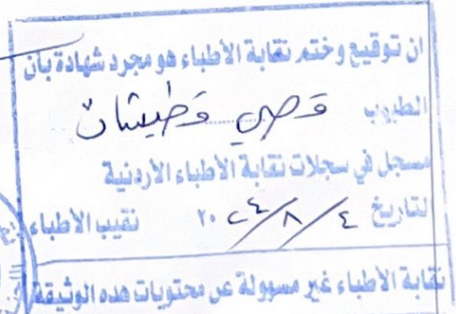 ان توقيع وختم نقابة الأطباء هو مجرد شهادة بأن
الطبيب قصي قطيشات
مسجل في سجلات نقابة الأطباء الأردنية
لتاريخ ٤/٨/٢٠٢٤ نقيب الأطباء
نقابة الأطباء غير مسؤولة عن محتويات هذه الوثيقة